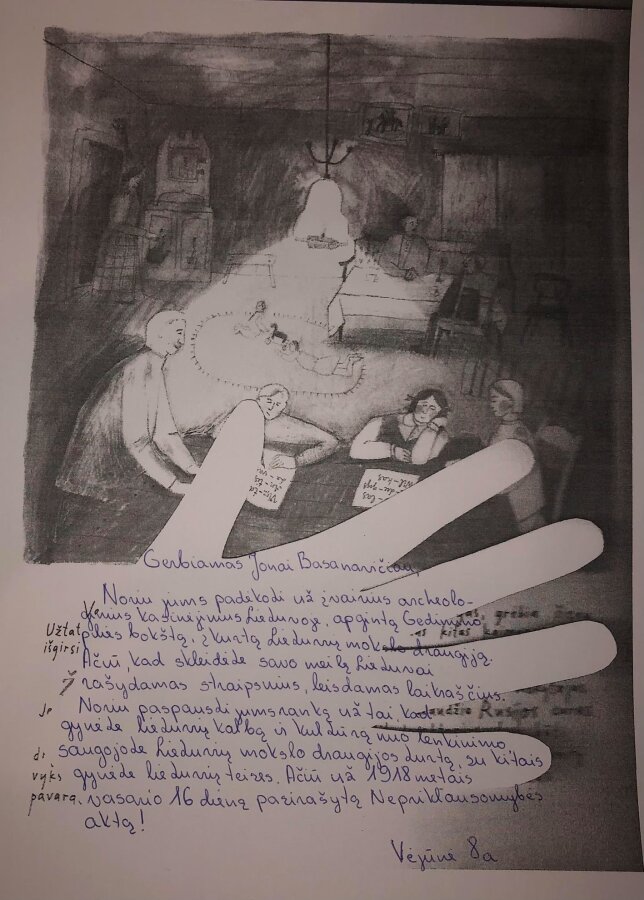 Viš-ta
du-tas
Gerbiamas Jonai Basanavičiau,
Noriu jums padėkoti už įvairius archeolo-
ginius kasinėjimus Lietuvoje, apgintą Gedimino
Užtat
pilies bokštą, įkurtą Lietuvių mokslo draugiją.
išgirsi
Ačiū, kad skleidėde savo meilę Lietuvai
rašydamas straipsnius, leisdamas laikraščius.
Noriu paspausti jums ranką už tai kad
gynėde lietuvių kalbą ir kultūrą nuo lenkinimo
saugojode Lietuvių mokslo draugijos turtą, su kitais
vyks gynėde lietuvių teises. Ačiū už 1918 metais
pavara. vasario 16 dieną pasirašytą Nepriklausomybės
aktą!
Vėjūnė 8a